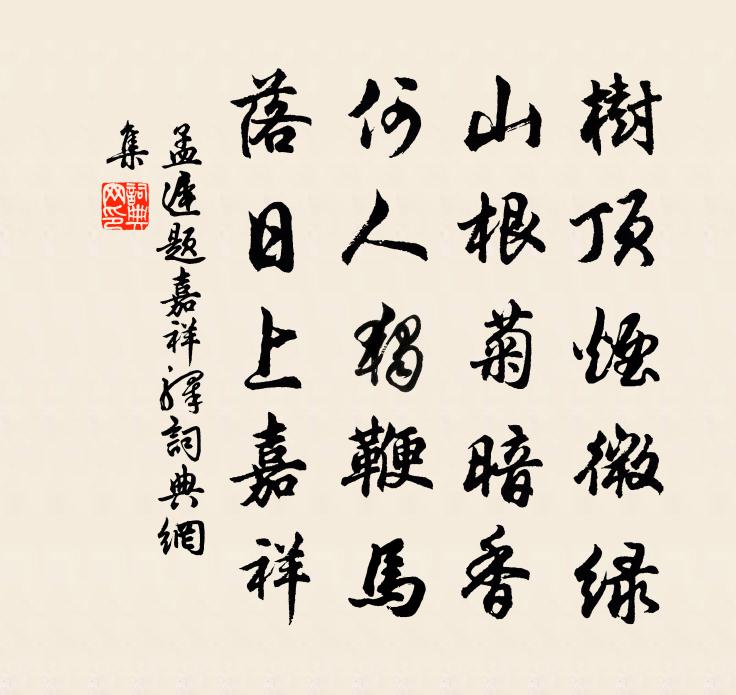 樹頂煙微綠
山根菊暗香
何人獨鞭馬
落日上嘉祥
孟遲題嘉祥驛詞典網
集
詞典
网印